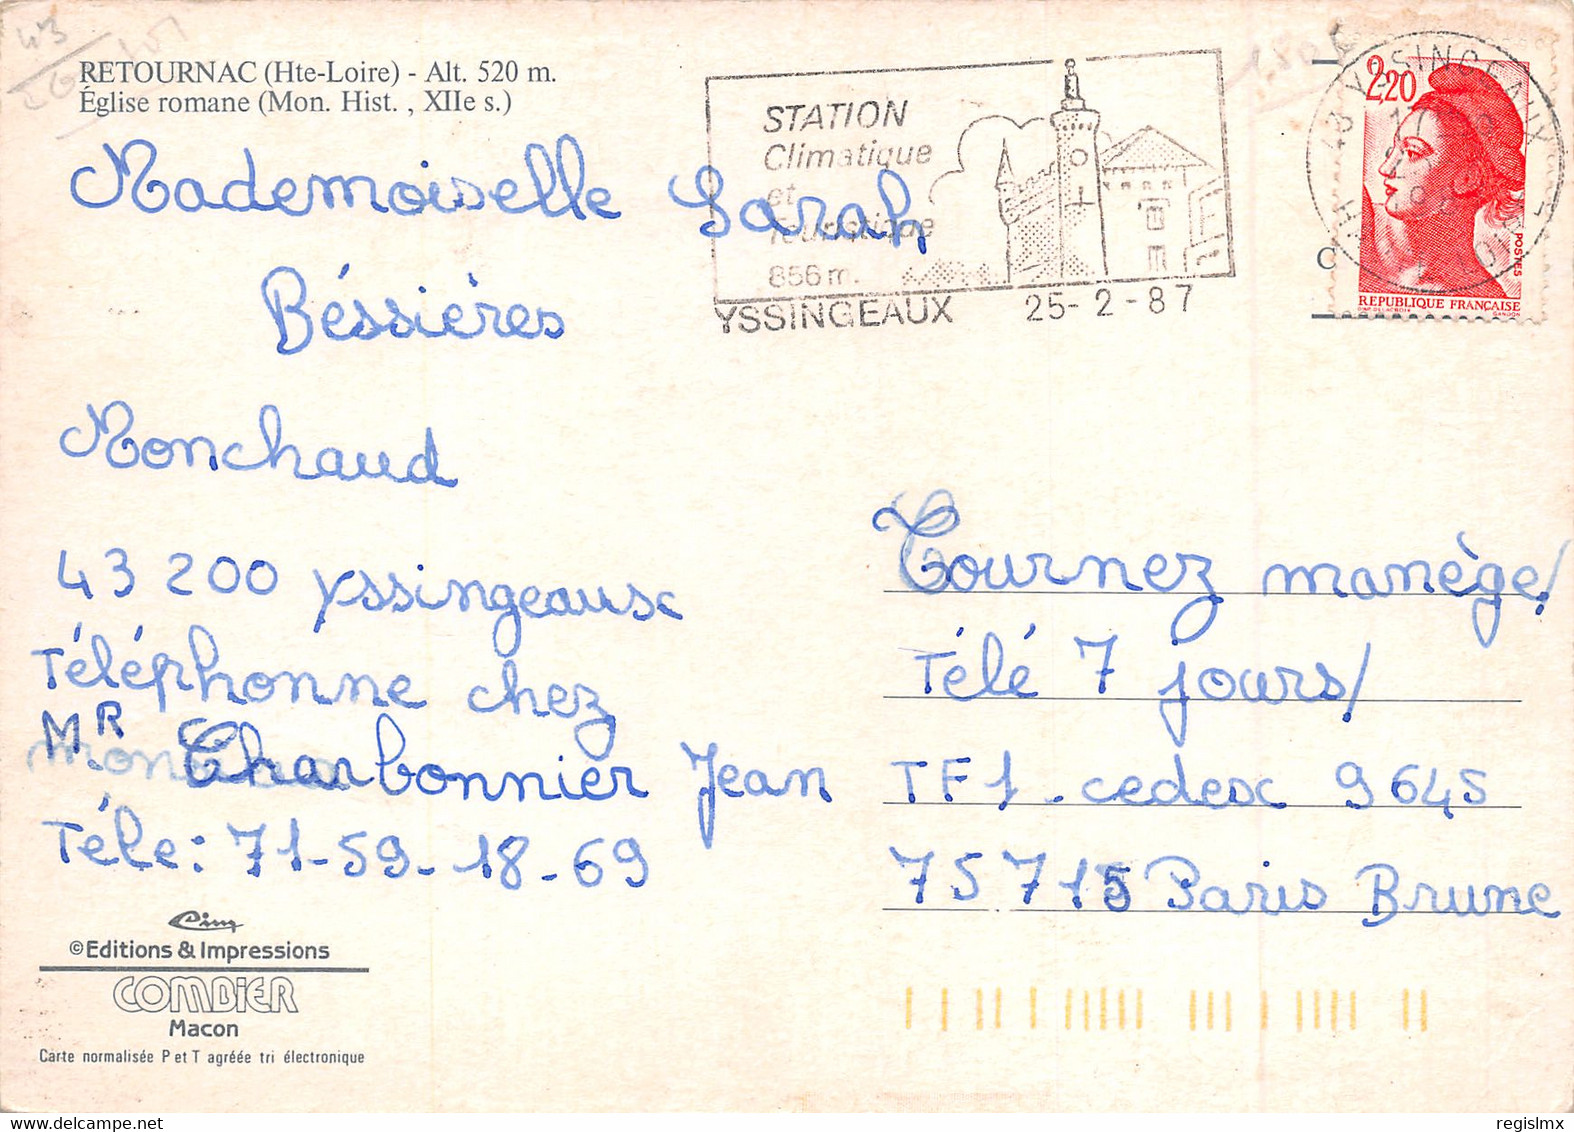 RETOURNAC (Hte-Loire) - Alt. 520 m.
Église romane (Mon. Hist. , XIIe s.)
STATION
Climatique
et
Touristique
856 m.
YSSINGEAUX 25-2-87
2,20
POSTES
REPUBLIQUE FRANÇAISE
Mademoiselle Sarah
Béssières
Monchaud
43 200 yssingeaux
Téléphonne chez
MR Charbonnier Jean
Téle: 71-59-18-69
Tournez manège/
Télé 7 jours/
TF1 - cedex 9645
75715 Paris Brune
Cim
©Editions & Impressions
COMBIER
Macon
Carte normalisée P et T agréée tri électronique
delcampe.net
regislmx